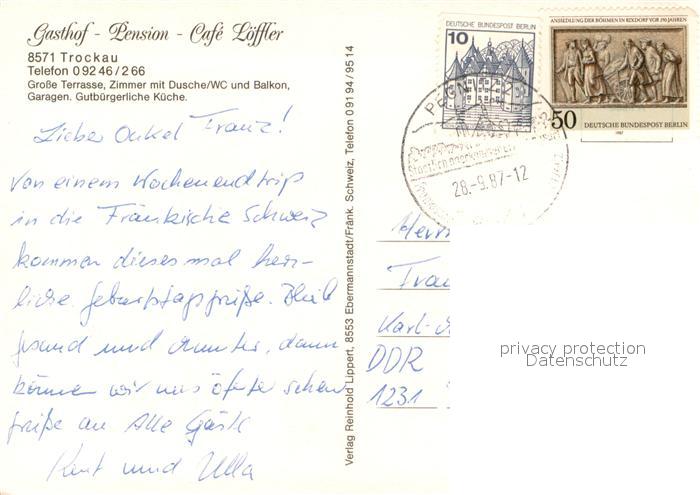 Gasthof - Pension - Café Löffler
8571 Trockau
Telefon 0 92 46 / 2 66
Große Terrasse, Zimmer mit Dusche/WC und Balkon,
Garagen. Gutbürgerliche Küche.
Lieber Onkel Franz!
Von einem Wochenendtrip
in die Fränkische Schweiz
kommen dieses mal herz-
liche Geburtstagsgrüße. Bleib
gesund und munter, dann
können wir uns öfter sehen
Grüße an Alle Gäste
Kurt und Ulla
Verlag Reinhold Lippert, 8553 Ebermannstadt/Fränk. Schweiz, Telefon 0 91 94 / 95 14
DEUTSCHE BUNDESPOST BERLIN
10
ANSIEDLUNG DER BÖHMEN IN RIXDORF VOR 250 JAHREN
50 DEUTSCHE BUNDESPOST BERLIN
1987
PEGNITZ
28.-9.87-12
Herrn
Fran
Karl-
DDR
1231
privacy protection
Datenschutz